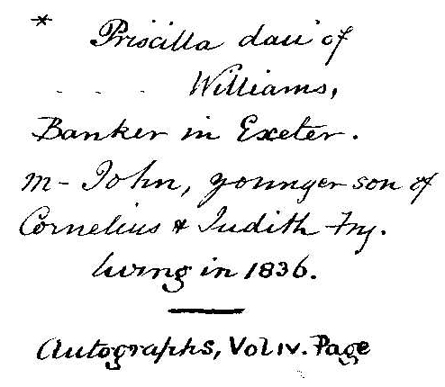 * Priscilla dau' of
. . . . Williams,
Banker in Exeter.
m - John, younger son of
Cornelius & Judith Fry.
living in 1836.
Autographs, Vol IV. Page